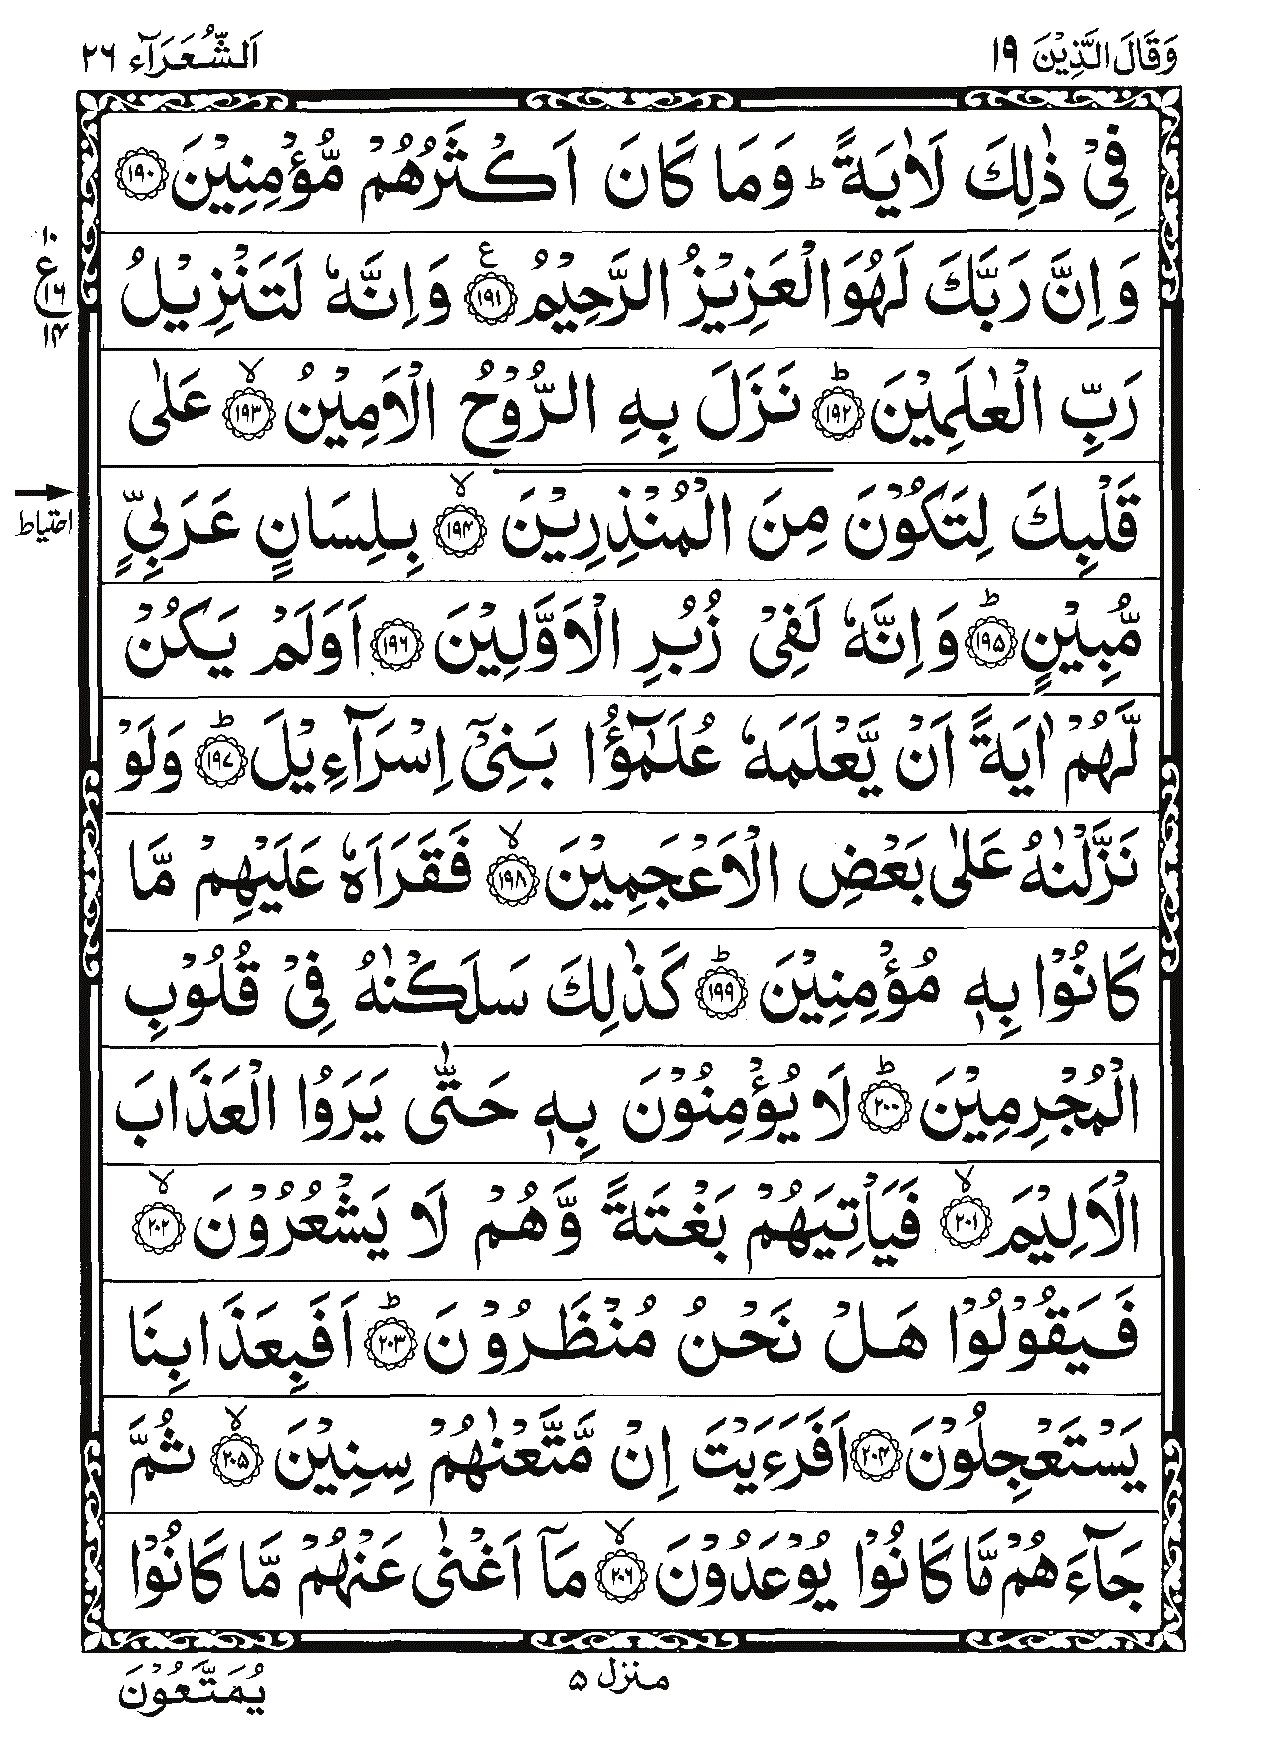 وَقَالَ الَّذِيْنَ ١٩
اَلشُّعَرَآء ٢٦
فِيْ ذٰلِكَ لَاٰيَةً ؕ وَمَا كَانَ اَكْثَرُهُمْ مُّؤْمِنِيْنَ ١٩٠
وَاِنَّ رَبَّكَ لَهُوَ الْعَزِيْزُ الرَّحِيْمُ ع ١٩١ وَاِنَّهٗ لَتَنْزِيْلُ
١٠
ع
١٦
١٤
رَبِّ الْعٰلَمِيْنَ ؕ ١٩٢ نَزَلَ بِهِ الرُّوْحُ الْاَمِيْنُ ۙ ١٩٣ عَلٰى
قَلْبِكَ لِتَكُوْنَ مِنَ الْمُنْذِرِيْنَ ۙ ١٩٤ بِلِسَانٍ عَرَبِيٍّ
احتیاط
مُّبِيْنٍ ؕ ١٩٥ وَاِنَّهٗ لَفِيْ زُبُرِ الْاَوَّلِيْنَ ١٩٦ اَوَلَمْ يَكُنْ
لَّهُمْ اٰيَةً اَنْ يَّعْلَمَهٗ عُلَمٰٓؤُا بَنِيْٓ اِسْرَآءِيْلَ ؕ ١٩٧ وَلَوْ
نَزَّلْنٰهُ عَلٰى بَعْضِ الْاَعْجَمِيْنَ ۙ ١٩٨ فَقَرَاَهٗ عَلَيْهِمْ مَّا
كَانُوْا بِهٖ مُؤْمِنِيْنَ ؕ ١٩٩ كَذٰلِكَ سَلَكْنٰهُ فِيْ قُلُوْبِ
الْمُجْرِمِيْنَ ؕ ٢٠٠ لَا يُؤْمِنُوْنَ بِهٖ حَتّٰى يَرَوُا الْعَذَابَ
الْاَلِيْمَ ۙ ٢٠١ فَيَاْتِيَهُمْ بَغْتَةً وَّهُمْ لَا يَشْعُرُوْنَ ۙ ٢٠٢
فَيَقُوْلُوْا هَلْ نَحْنُ مُنْظَرُوْنَ ؕ ٢٠٣ اَفَبِعَذَابِنَا
يَسْتَعْجِلُوْنَ ٢٠٤ اَفَرَءَيْتَ اِنْ مَّتَّعْنٰهُمْ سِنِيْنَ ۙ ٢٠٥ ثُمَّ
جَآءَهُمْ مَّا كَانُوْا يُوْعَدُوْنَ ۙ ٢٠٦ مَآ اَغْنٰى عَنْهُمْ مَّا كَانُوْا
منزل ٥
يُمَتَّعُوْنَ